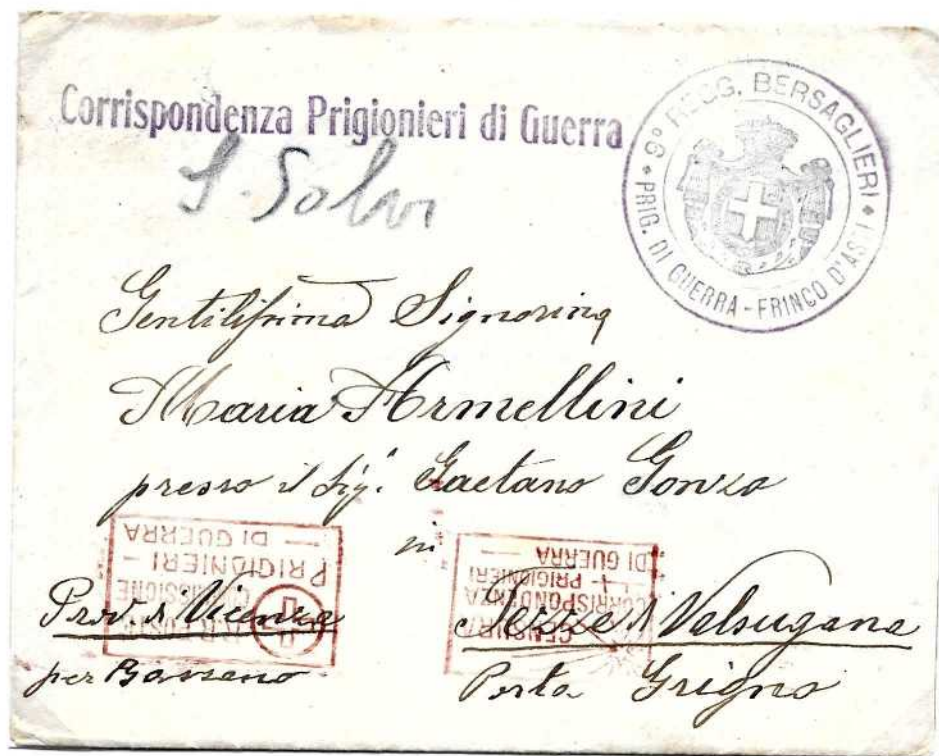 Corrispondenza Prigionieri di Guerra
9° REGG. BERSAGLIERI
PRIG. DI GUERRA - FRINCO D'ASTI
Gentilissima Signorina
Maria Armellini
presso il Sig. Gaetano Gonzo
in
COMMISSIONE
PRIGIONIERI -
— DI GUERRA
CENSURA
CORRISPONDENZA
PRIGIONIERI
DI GUERRA —
Prov. di Vicenza
Tezze di Valsugana
per Bassano
Posta Grigno